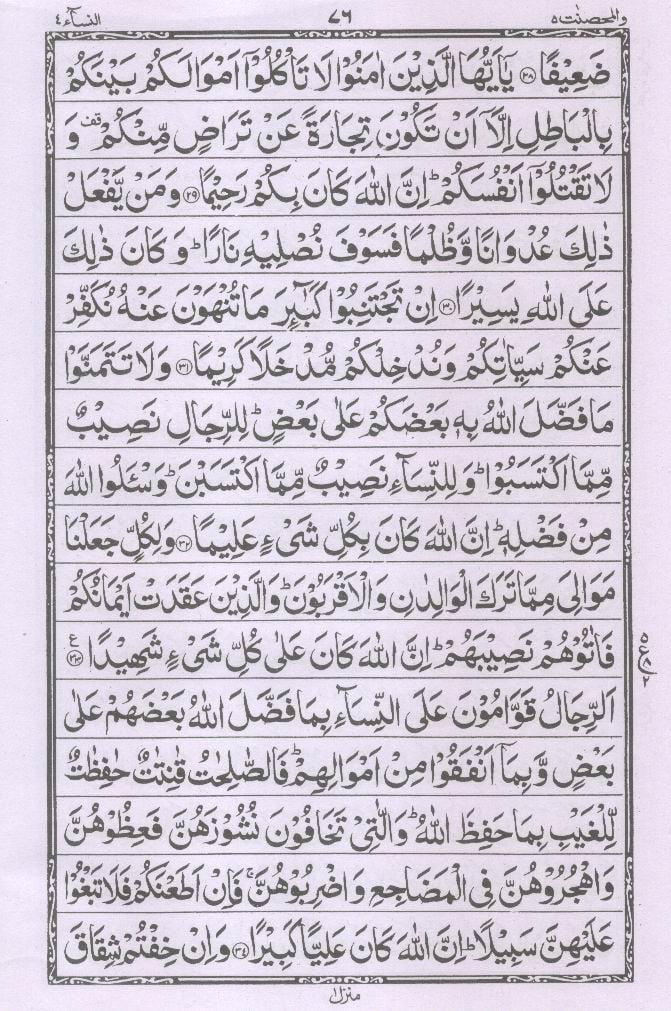 النسآء ٤ ٧٦ والمحصنٰت ٥
ضَعِيْفًا ﴿٢٨﴾ يٰۤاَيُّهَا الَّذِيْنَ اٰمَنُوْا لَا تَاْكُلُوْۤا اَمْوَالَكُمْ بَيْنَكُمْ
بِالْبَاطِلِ اِلَّاۤ اَنْ تَكُوْنَ تِجَارَةً عَنْ تَرَاضٍ مِّنْكُمْ ۫ وَ
لَا تَقْتُلُوْۤا اَنْفُسَكُمْ ؕ اِنَّ اللّٰهَ كَانَ بِكُمْ رَحِيْمًا ﴿٢٩﴾ وَ مَنْ يَّفْعَلْ
ذٰلِكَ عُدْوَانًا وَّظُلْمًا فَسَوْفَ نُصْلِيْهِ نَارًا ؕ وَ كَانَ ذٰلِكَ
عَلَى اللّٰهِ يَسِيْرًا ﴿٣٠﴾ اِنْ تَجْتَنِبُوْا كَبَآئِرَ مَا تُنْهَوْنَ عَنْهُ نُكَفِّرْ
عَنْكُمْ سَيِّاٰتِكُمْ وَنُدْخِلْكُمْ مُّدْخَلًا كَرِيْمًا ﴿٣١﴾ وَلَا تَتَمَنَّوْا
مَا فَضَّلَ اللّٰهُ بِهٖ بَعْضَكُمْ عَلٰى بَعْضٍ ؕ لِلرِّجَالِ نَصِيْبٌ
مِّمَّا اكْتَسَبُوْا ؕ وَ لِلنِّسَآءِ نَصِيْبٌ مِّمَّا اكْتَسَبْنَ ؕ وَسْـَٔلُوا اللّٰهَ
مِنْ فَضْلِهٖ ؕ اِنَّ اللّٰهَ كَانَ بِكُلِّ شَىْءٍ عَلِيْمًا ﴿٣٢﴾ وَلِكُلٍّ جَعَلْنَا
مَوَالِىَ مِمَّا تَرَكَ الْوَالِدٰنِ وَالْاَقْرَبُوْنَ ؕ وَالَّذِيْنَ عَقَدَتْ اَيْمَانُكُمْ
فَاٰتُوْهُمْ نَصِيْبَهُمْ ؕ اِنَّ اللّٰهَ كَانَ عَلٰى كُلِّ شَىْءٍ شَهِيْدًا ﴿٣٣﴾ ع
اَلرِّجَالُ قَوّٰمُوْنَ عَلَى النِّسَآءِ بِمَا فَضَّلَ اللّٰهُ بَعْضَهُمْ عَلٰى
بَعْضٍ وَّ بِمَاۤ اَنْفَقُوْا مِنْ اَمْوَالِهِمْ ؕ فَالصّٰلِحٰتُ قٰنِتٰتٌ حٰفِظٰتٌ
لِّلْغَيْبِ بِمَا حَفِظَ اللّٰهُ ؕ وَالّٰتِىْ تَخَافُوْنَ نُشُوْزَهُنَّ فَعِظُوْهُنَّ
وَاهْجُرُوْهُنَّ فِى الْمَضَاجِعِ وَاضْرِبُوْهُنَّ ۚ فَاِنْ اَطَعْنَكُمْ فَلَا تَبْغُوْا
عَلَيْهِنَّ سَبِيْلًا ؕ اِنَّ اللّٰهَ كَانَ عَلِيًّا كَبِيْرًا ﴿٣٤﴾ وَاِنْ خِفْتُمْ شِقَاقَ
منزل ١